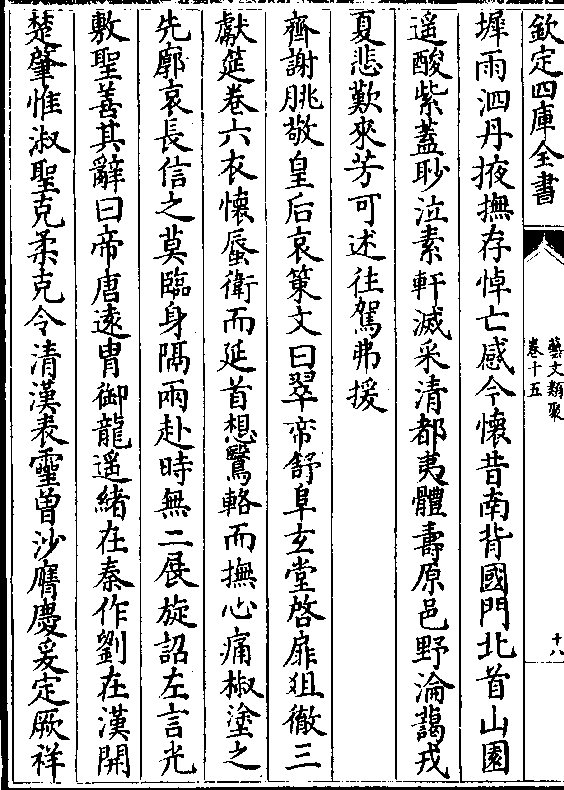 欽定四庫全書
藝文類聚
卷十五
十八
墀雨泗丹掖撫存悼亡感今懷昔南背國門北首山園
遥酸紫葢眇泣素軒滅采清都夷體壽原邑野淪藹戎
夏悲歎來芳可述往駕弗援
齊謝朓敬皇后哀策文曰翠帟舒阜玄堂啓扉俎徹三
獻筵卷六衣懷蜃衛而延首想鷖輅而撫心痛椒塗之
先廓哀長信之莫臨身隔兩赴時無二展旋詔左言光
敷聖善其辭曰帝唐遠胄御龍遥緒在秦作劉在漢開
楚肇惟淑聖克柔克令清漢表靈曾沙膺慶爰定厥祥